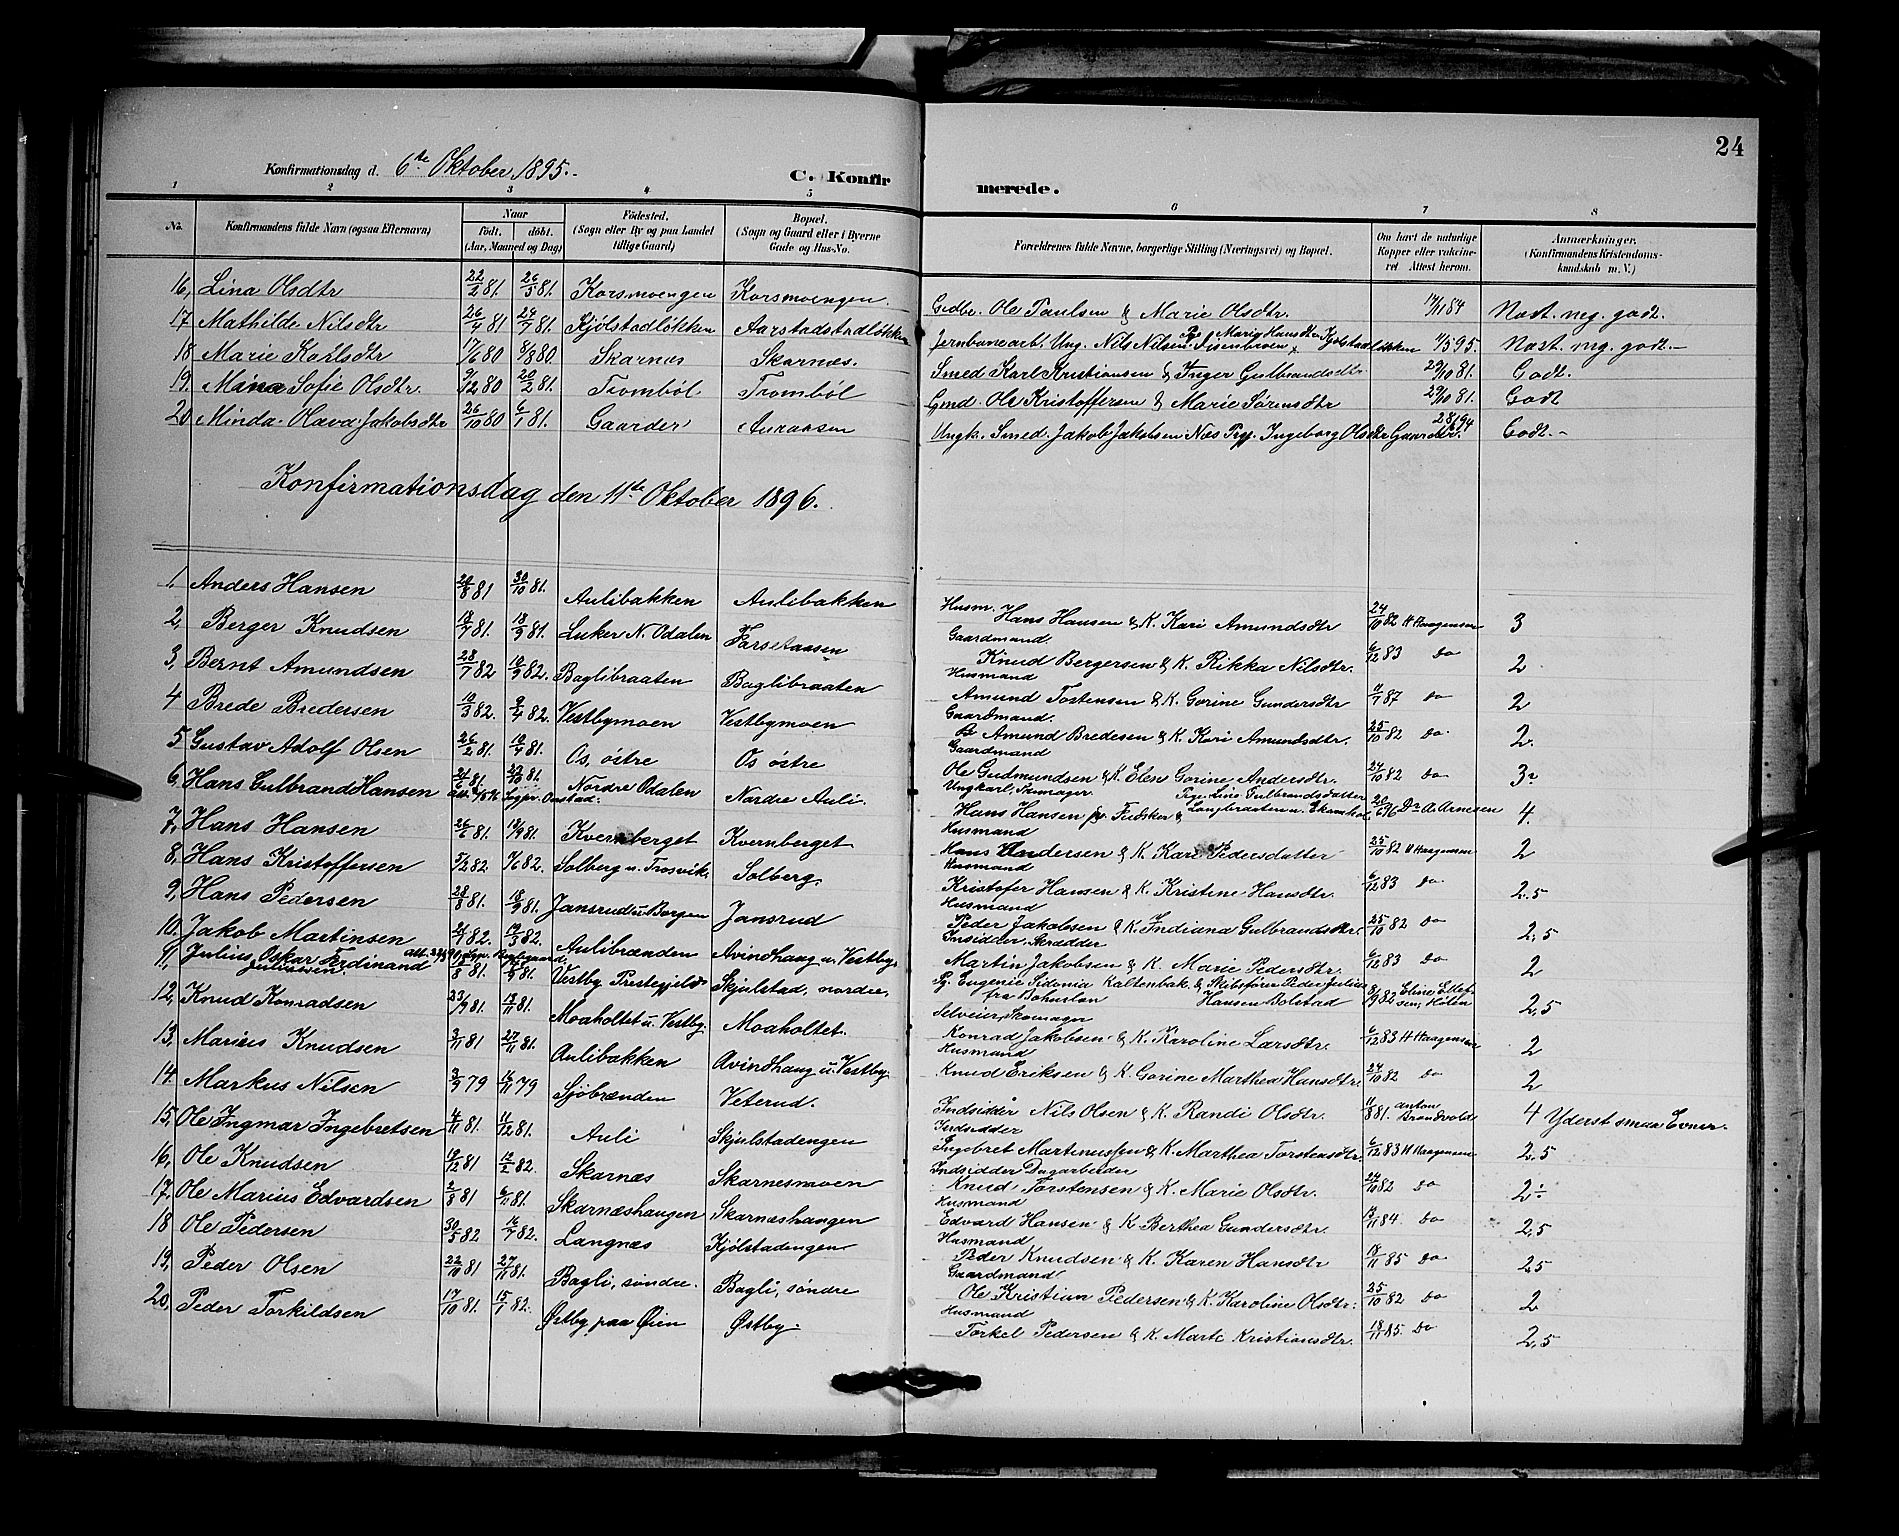 24
Konfirmationsdag d. 6te Oktober 1895.
C. Konfirmerede.
1 2 3 4 5 6 7 8
No. Konfirmandens fulde Navn (ogsaa Efternavn) Naar født. døbt. (Aar, Maaned og Dag) Fødested. (Sogn eller By og paa Landet tillige Gaard) Bopæl. (Sogn og Gaard eller i Byerne Gade og Hus-No. Forældrenes fulde Navne, borgerlige Stilling (Næringsvei) og Bopæl. Om havt de naturlige Kopper eller vakcineret Attest herom. Anmærkninger. (Konfirmandens Kristendomskundskab m. V.)
16, Lina Olsdtr 22/2 81. 26/5 81. Korsmoengen Korsmoengen. Gdbr. Ole Paulsen & Marie Olsdtr. Næst. meg. godt.
17 Mathilde Nilsdtr 26/4 81 24/7 81. Kjølstadløkken Aarstadstadløkken Jernbanearb. Ung. Nils Nilsen & Pge Marie Hansdtr Kjølstadløkken 4/5 95. Næst. meg. godt.-
18 Marie Karlsdtr 17/6 80 8/8 80 Skarnæs Skarnæs. Smed Karl Kristiansen & Inger Gulbrandsdtr 29/10 81. Godt.
19. Mina Sofie Olsdtr. 9/12 80 20/2 81. Trombøl Trombøl Gmd. Ole Kristoffersen & Marie Sørensdtr 29/10 81. Godt
20 Minda Olava Jakobsdtr 26/10 80 6/1 81. Gaarder Auraasen Ungk. Smed. Jakob Jakobsen Næs Pge. Ingeborg Olsdtr Gaarder. Godt.-
Konfirmationsdag den 11te Oktober 1896.
1. Anders Hansen 20/8 81 30/10 81. Aulibakken Aulibakken Husm. Hans Hansen & K. Kari Amundsdtr 24/10 82 H Haagensen 3
2, Berger Knudsen 18/7 81. 18/9 81. Luker N. Odalen Farsetaasen Gaardmand Knud Bergersen & K. Rikka Nilsdtr. 6/12 83 do 2
3, Bernt Amundsen 28/7 82 10/9 82. Baglibraaten Baglibraaten Husmand Amund Torstensen & K. Gorine Gundersdtr 4/7 87 do 2
4 Brede Bredersen 10/3 82. 9/4 82. Vestbymoen Vestbymoen Gaardmand. Amund Bredesen & K. Kari Amundsdtr. 25/10 82 do 2.
5 Gustav Adolf Olsen 26/2 81. 10/4 81. Os, østre Os østre Gaardmand Ole Gudmundsen & K. Elen Gorine Andersdtr. 24/10 82 do 3
6, Hans Gulbrand Hansen 21/6 81. 23/10 81. Nordre Odalen Nordre Auli. Ungkarl, Hans Hansen Pige Lina Gulbrandsdatter Arnesen 4.
7, Hans Hansen 26/6 81. 18/9 81. Kvernberget Kvernberget Husmand Hans Andersen & K. Kari Pedersdatter 25/10 82 H Haagensen 2
8, Hans Kristoffersen 5/2 82. 9/6 82. Solberg u. Trosvik. Solberg. Husmand Kristofer Hansen & K. Kristine Hansdtr. 6/12 83 do 2,5
9, Hans Pedersen 28/8 81. 18/9 81. Jansrud u Borgen Jansrud Husmand Peder Jakobsen & K. Indiana Gulbrandsdtr. 25/10 82 do 2,5
10. Jakob Martinsen 21/1 82. 19/3 82. Aulibrænden Avindhaug u. Vestby. Indsidder, Skrædder Martin Jakobsen & K. Marie Pedersdtr. 6/12 83 do 2
11, Julius Oskar Ferdinand Juliussen Vestby Prestegjeld Skjulstad, nordre, Pg. Eugenie Sidonia Kaltenbak & Skibsfører Peder Julius fra Bohuslän Hansen Bolstad Eline Ellefsen, Hølen 2,5
12, Knud Konradsen 23/9 81. 13/11 81. Moaholtet u. Vestby. Moaholtet. Selveier, Skomager Konrad Jakobsen & K. Karoline Larsdtr. 6/12 83 H Haagensen 2
13, Marius Knudsen 3/11 81 27/11 81. Aulibakken Avindhaug u. Vestby. Husmand Knud Eriksen & K. Gorine Marthea Hansdtr. 24/10 82 do 2
14. Markus Nilsen 3/9 79 16/11 79 Sjøbrænden Veterud. Indsidder Nils Olsen & K. Randi Olsdtr. 11/8 81. Anton Brandvold 4 Yderst smaa Evner.
15, Ole Ingmar Ingebretsen 4/11 81. 11/12 81. Auli Skjulstadengen Indsidder Ingebret Martinussen & K. Marthea Torstensdtr. 6/12 83 H Haagensen 2,5
16, Ole Knudsen 19/12 81 12/2 82. Skarnæs Skarnesmoen Indsidder Dagarbeider Knud Torstensen & K. Marie Olsdtr. 24/10 82 do 2÷
17, Ole Marius Edvardsen 2/8 81 6/11 81. Skarnæshaugen Skarnæshaugen Husmand Edvard Hansen & K Berthea Gundersdtr. 19/11 84. do 2,5
18 Ole Pedersen 30/5 82 16/7 82. Langnæs Kjølstadengen Husmand Peder Knudsen & K. Karen Hansdtr 18/11 85 do 2,5
19, Peder Olsen 22/10 81 27/11 81. Bagli, søndre. Bagli, søndre Gaardmand Ole Kristian Pedersen & K. Karoline Olsdtr. 25/10 82 do 2
20, Peder Torkildsen 17/10 81. 15/1 82. Østby paa Øien Østby. Husmand Torkel Pedersen & K. Marte Kristiansdtr. 18/11 85. do 2,5